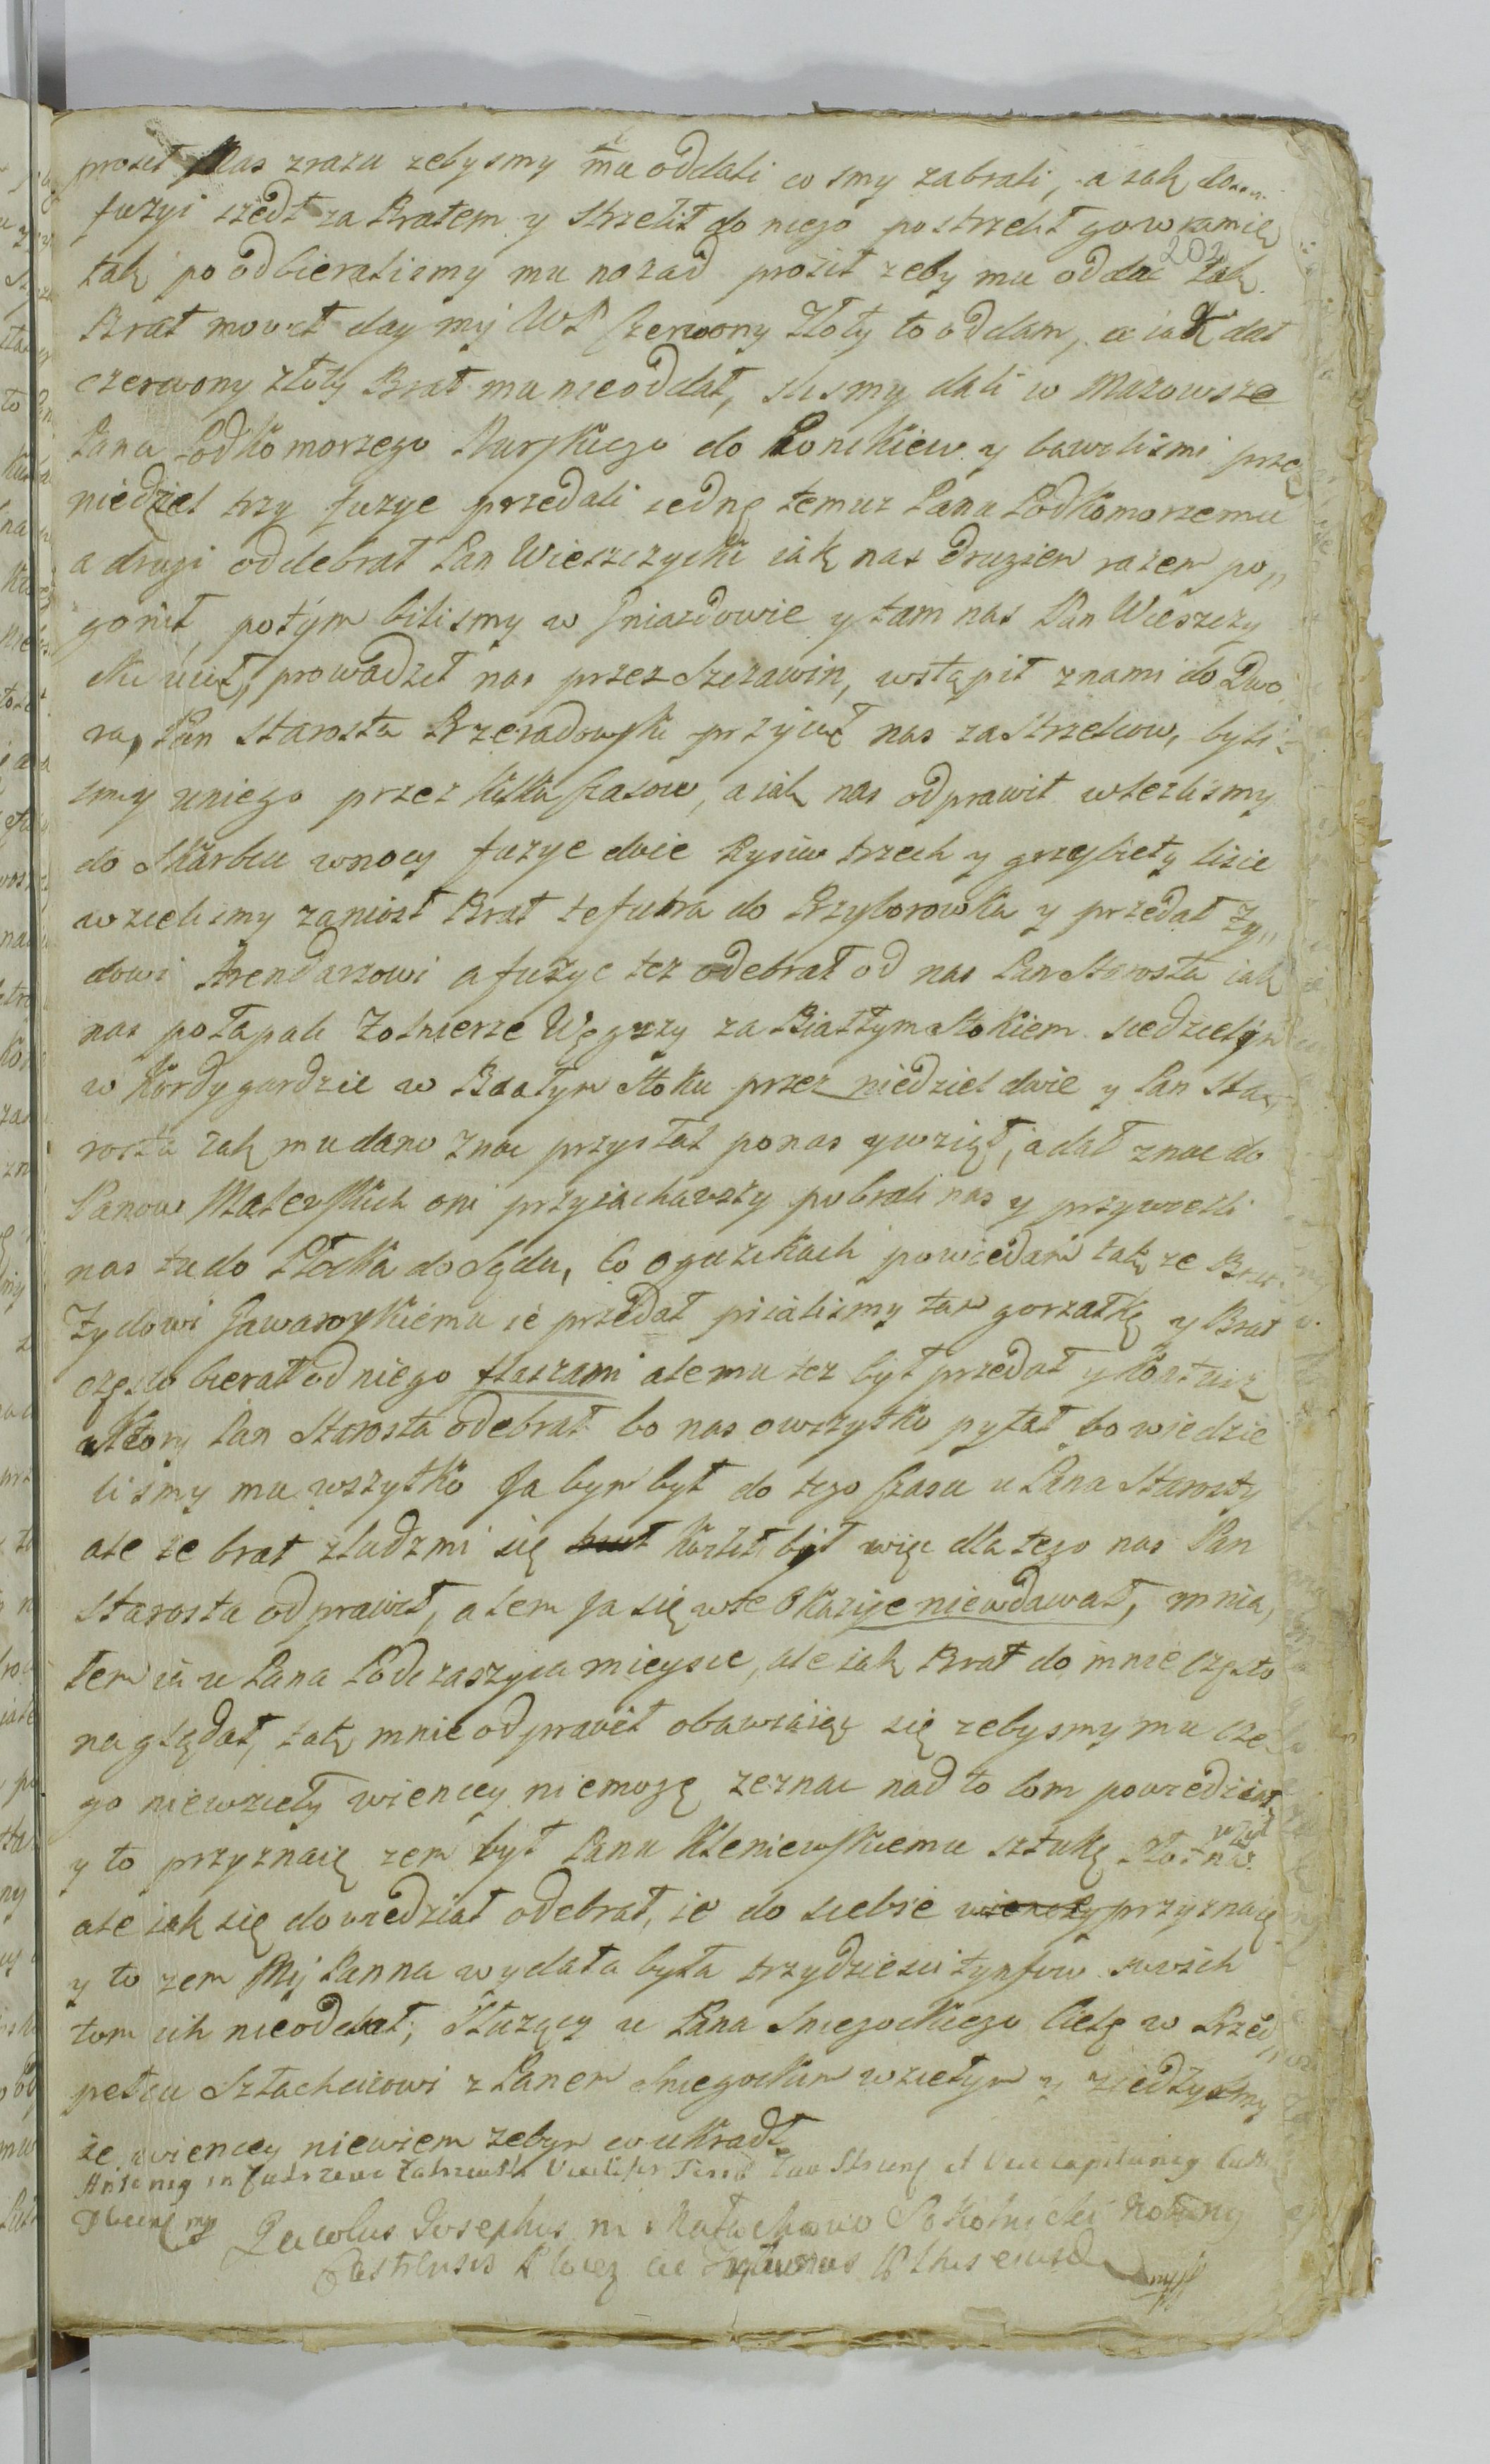 prosił Nas zrazu zebysmy mu oddali co smy zabrali, a iak do
fuzyi szedł za Bratem y strzelił do niego postrzelił go w ramię
202
tak poodbieralismy mu nazad prosił zeby mu oddac tak
Brat mowił day mij WP Czerwony Złoty to oddam, a iak dał
czerwony złoty Brat mu nieoddał, slismy dali w Mazowsze
Pana Podkomorzego do y bawilismi przez
niedziel trzy fuzye przedali iednę temuz Panu Podkomorzemu
a drugi oddebrał Pan Wieszczycki iak nas drugiem razem po„
gonił, potým bilismy w Gniazdowie y tam nas Pan Wieszczy
cki uiął, prowadzeł nas przez Szczawin, wstąpił znami do Dwo
ra, Pan Starosta przyiuł nas za strzelcow, byli
smy uniego przez kilka Czasow, a iak nas odprawił wlezlismy
do Skarbcu wnocy fuzye dwie Rysiw trzech y grzybiety lisie
wzielismy zaniost Brat te futra do Przyborowka y przedał Zy„
dowi Arendarzowi a fuzye tez odebrał od nas Pan Starosta iak
nas połapali Zołnierze Węgrzy za Białłym Stokiem siedzielism
w Kordygardzie w Białym Stoku przez niedziel dwie y Pan Sta„
rosta iak mu dano znac przysłał ponas y wziął, a dał znac do
Panow oni przyiachawszy pobrali nas y przywiezli
nas tu do Płocka do Sędu, Co o guzikach powiedam tak ze Brat
Zydowi ie przedał pialismy tam gorzałkę y Brat
często bierał od niego flaszami ale mu tez był przedał y kontusz
ktory Pan Starosta odebrał bo nas owszystko pytał bo wiedzie
lismy mu wszytko Ja bym był do tego Czasu u Pana Starosty
ale ze brat zludzmi się był więc dla tego nas Pan
Starosta odprawił, alem Ja się wte Okazije niewdawał, mnia,
łem ia u Pana Podczaszyca mieysce, ale iak Brat do mnie często
naglądał, tak mnie odprawił obawiaięc się zebysmy mu cze
go niewzieły wiencey niemogę zeznac nad to com powiedział
y to przyznaię zem był Panu Kleniewskiemu sztukę Płotna wziął
ale iak się dowiedział odebrał, ie do siebie wiencey przyznaię
y to zem Mij Panna wydała była trzydziesci tynfow swoich
tom iih nieoddał, Słuzący u Pana Sniegockiego Cielę w Przed
pełcu Szlachcicowi z Panem Sniegockim wziełym y ziedlysmy
ie wiencey niewiem zebym co ukradł
Jacobus Josephus Notarius
Castrensis